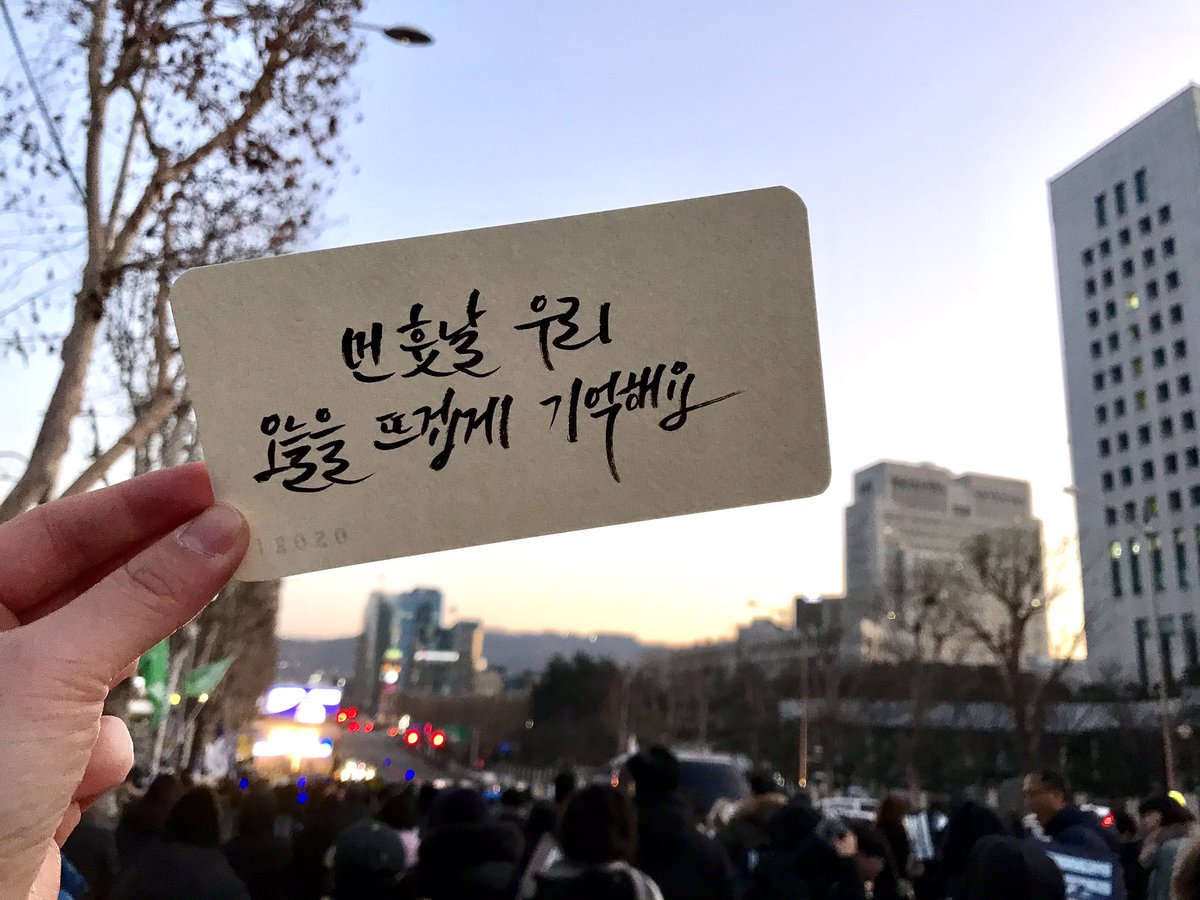 먼 훗날 우리
오늘을 뜨겁게 기억해요